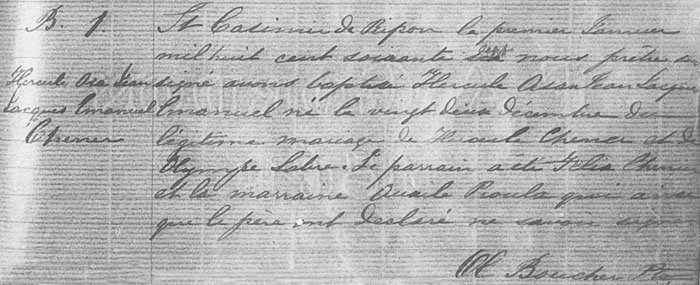 B. 1.
Hercule Asa Jean
Jacques Emanuel
Chener
St Casimir de Ripon le premier Janvier
mil huit cent soixante nous prêtre sou
signé avons baptisé Hercule Asa Jean Jacques
Emanuel né le vingt deux décembre du
légitime mariage de Hercule Chener et de
Olympe Labre. Le parrain a été Félix Chener
et la marraine Proulx qui ainsi
que le père ont déclaré ne savoir signer
Boucher Ptr